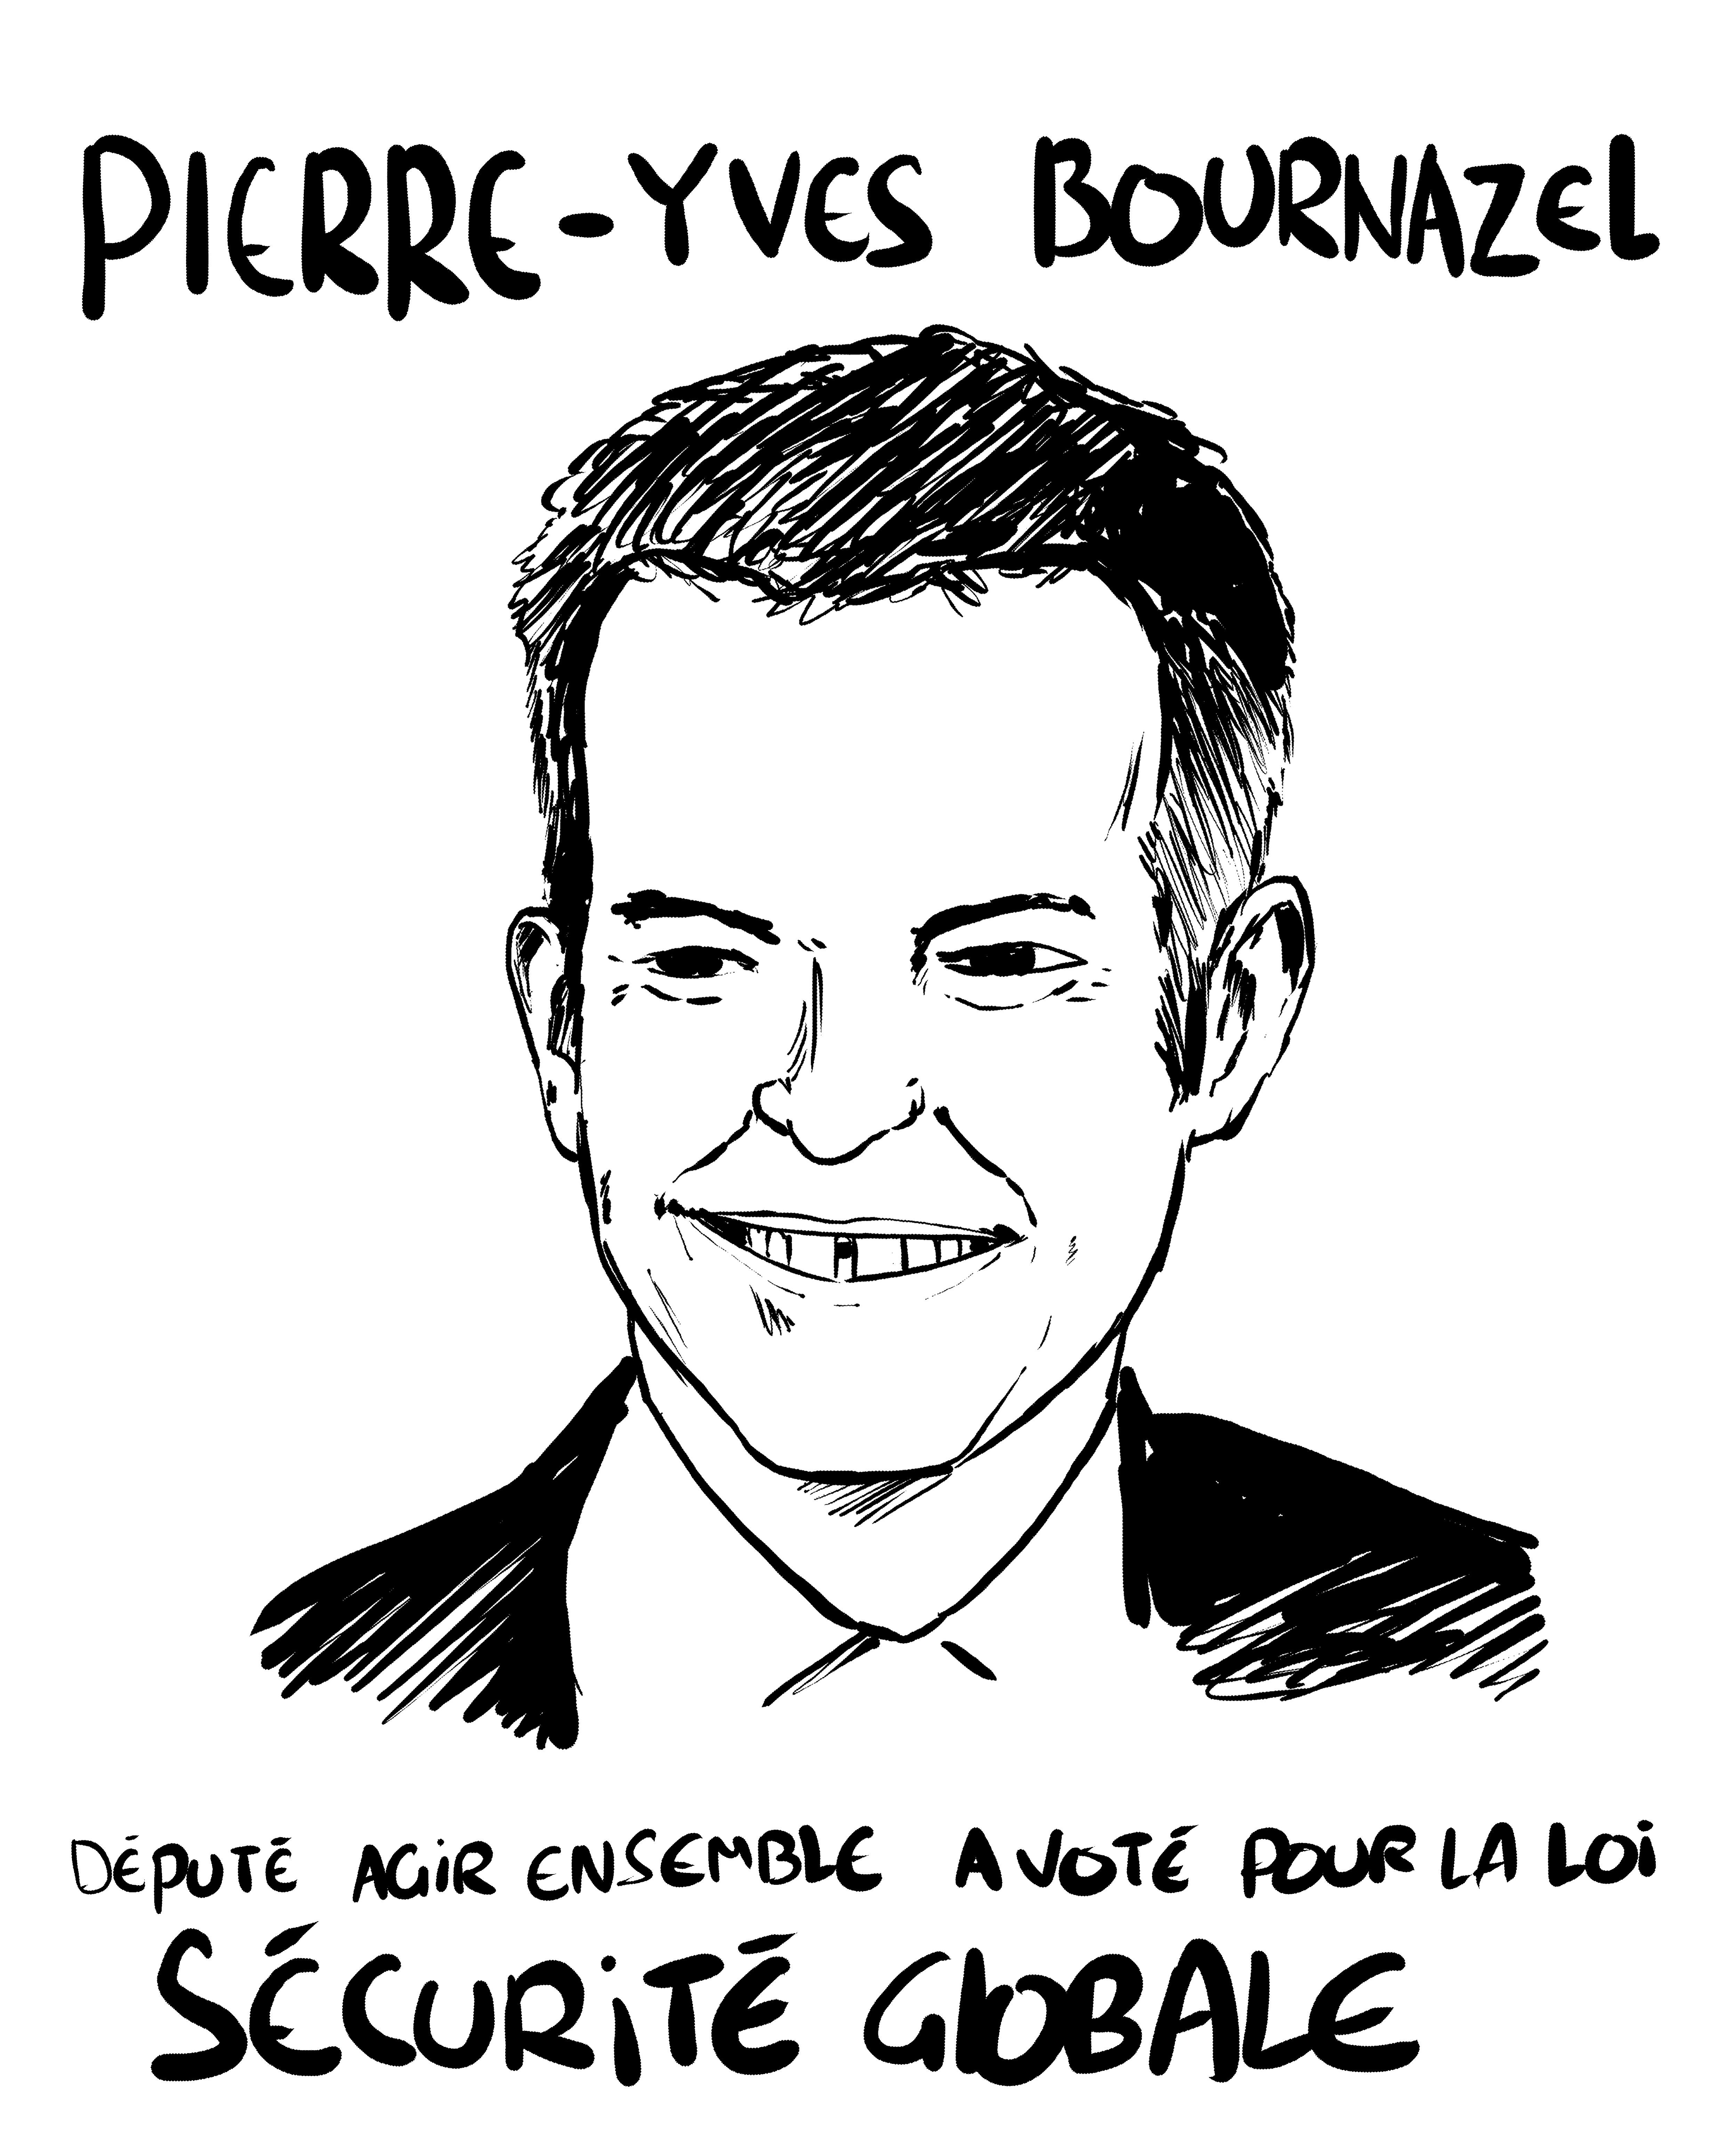 PIERRE-YVES BOURNAZEL
DÉPUTÉ AGIR ENSEMBLE A VOTÉ POUR LA LOI
SÉCURITÉ GLOBALE